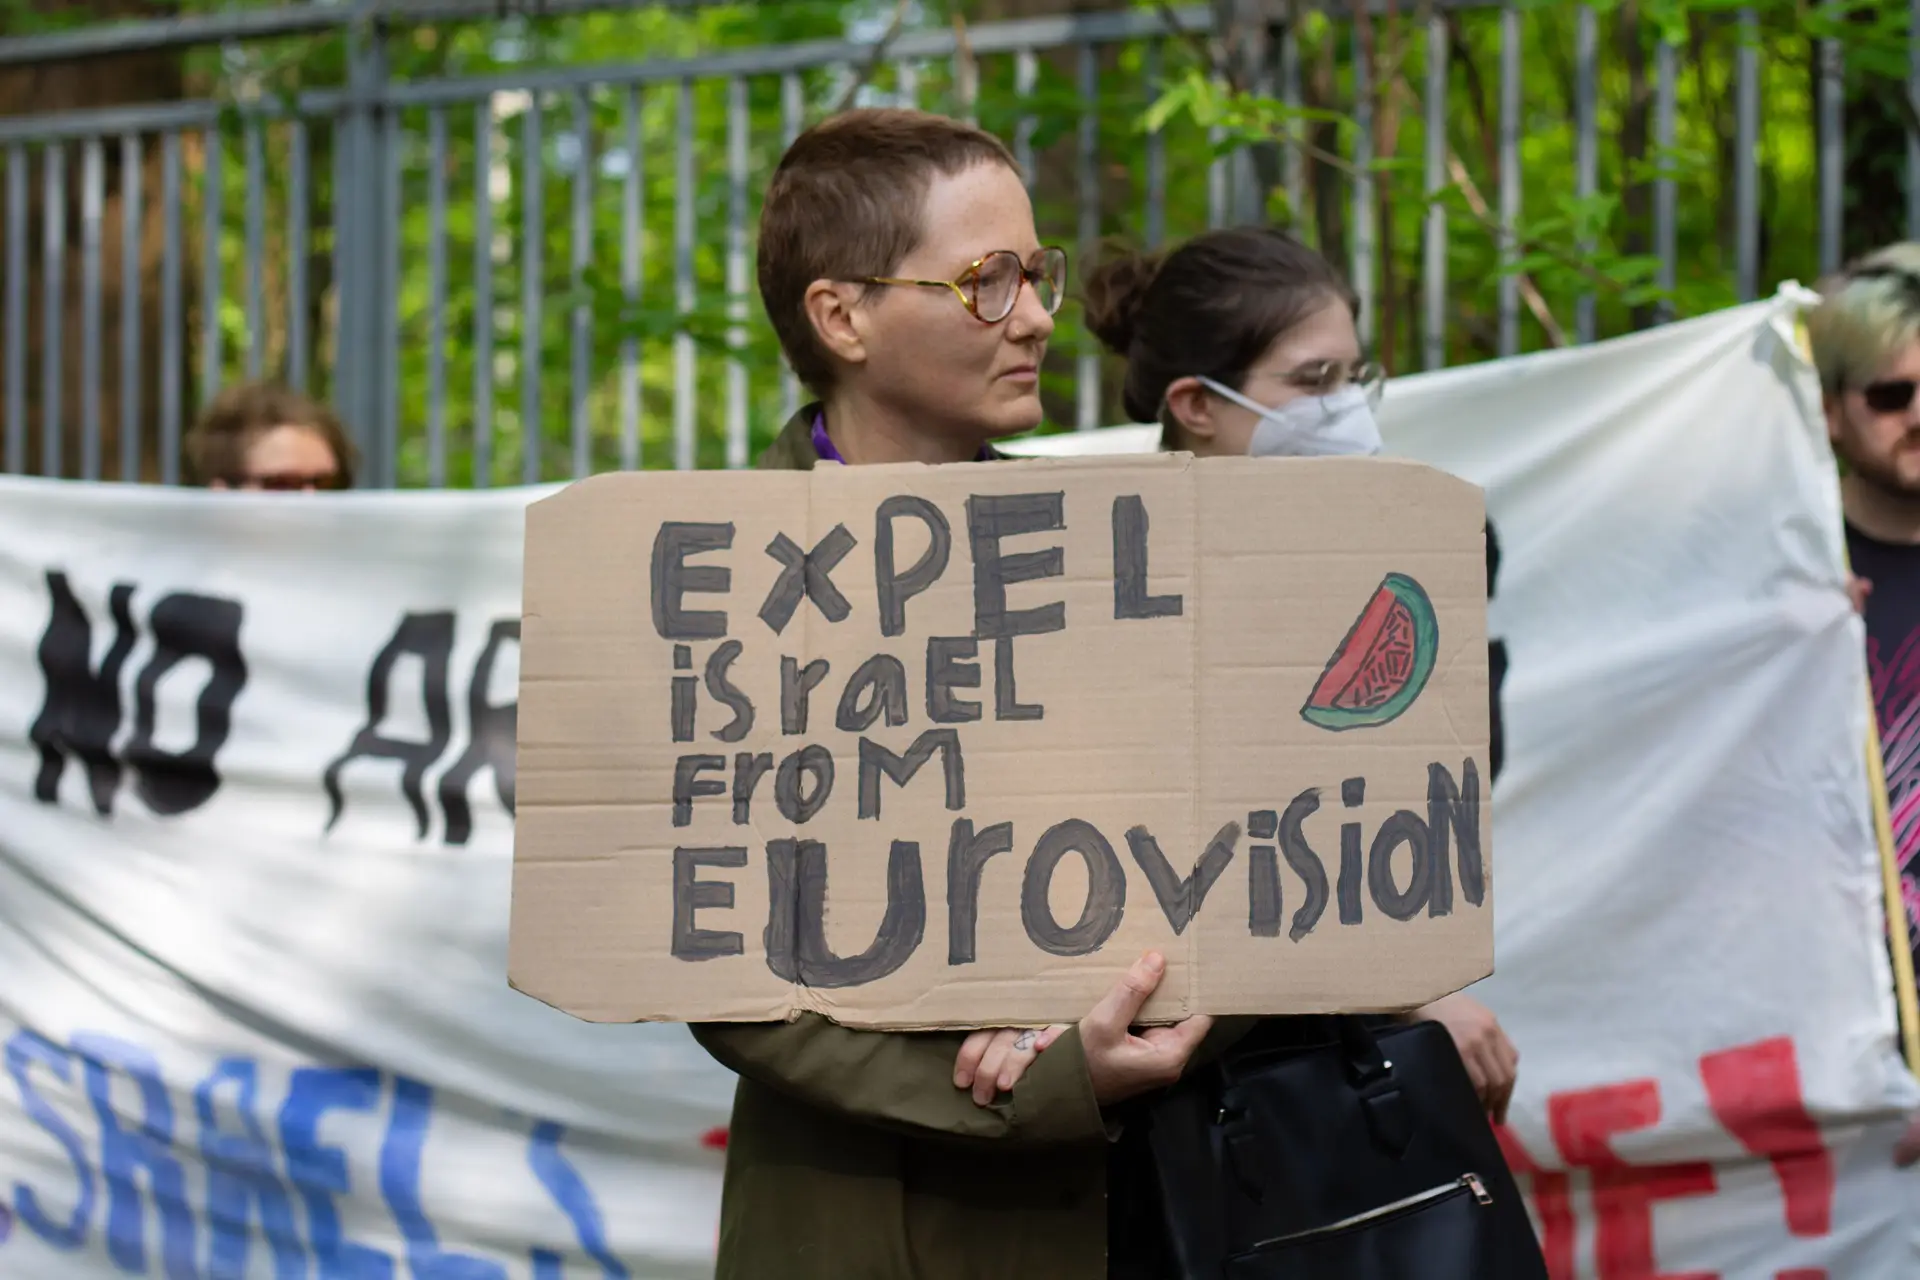 EXPEL
israEL
FroM
EUrovisioN
NO
SRAEL'S